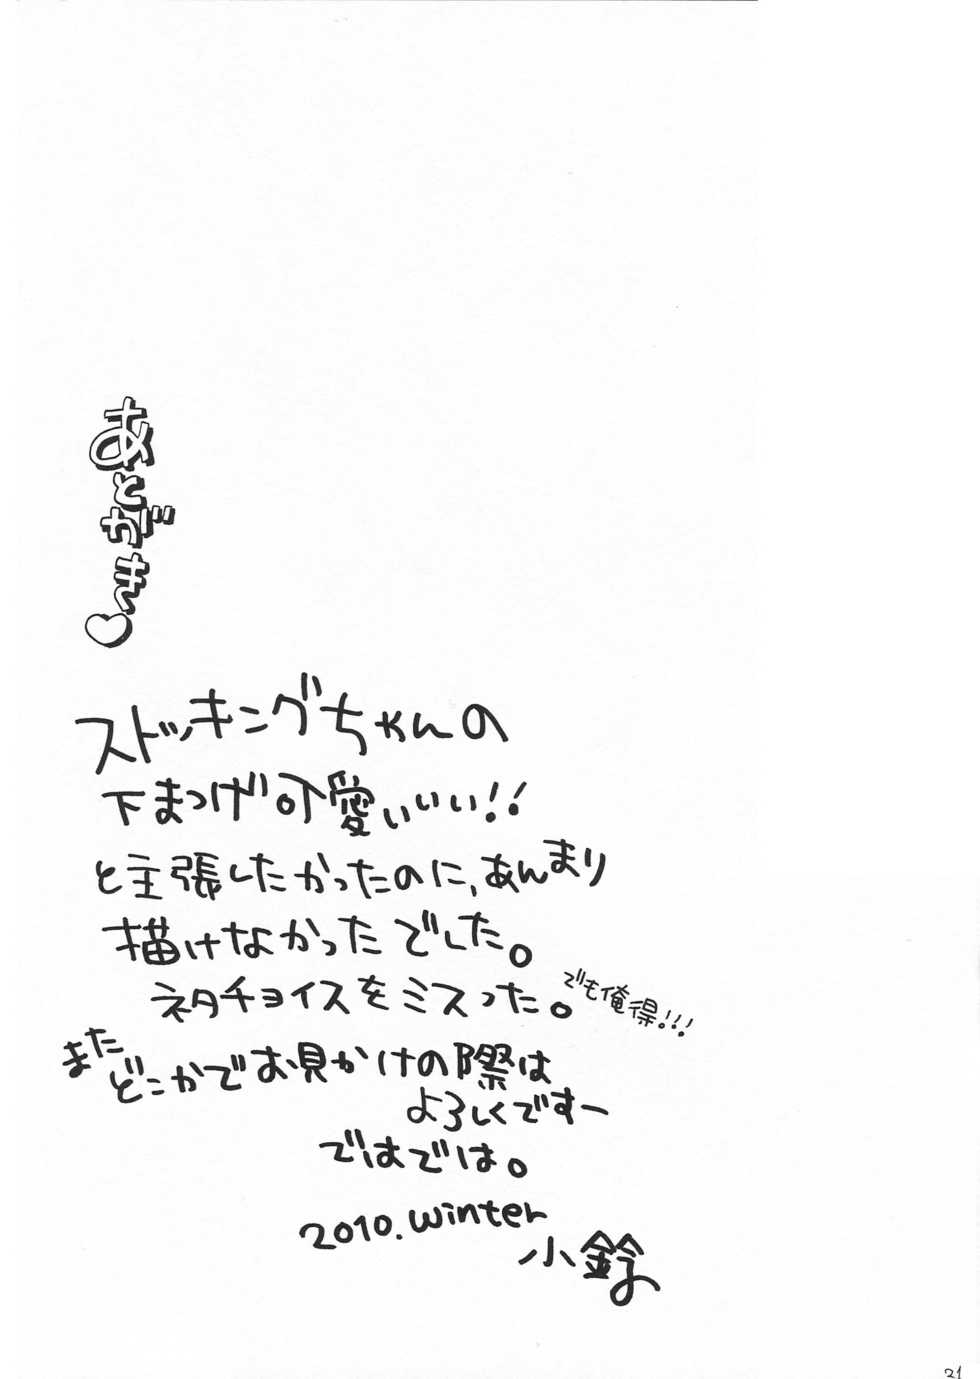 あとがき♡
ストッキングちゃんの
下まつげ可愛いいい!!
と主張したかったのに、あんまり
描けなかったでした。
ネタチョイスをミスった。でも俺得!!!
また
どこかでお見かけの際は
よろしくですー
ではでは。
2010.winter
小鈴
21